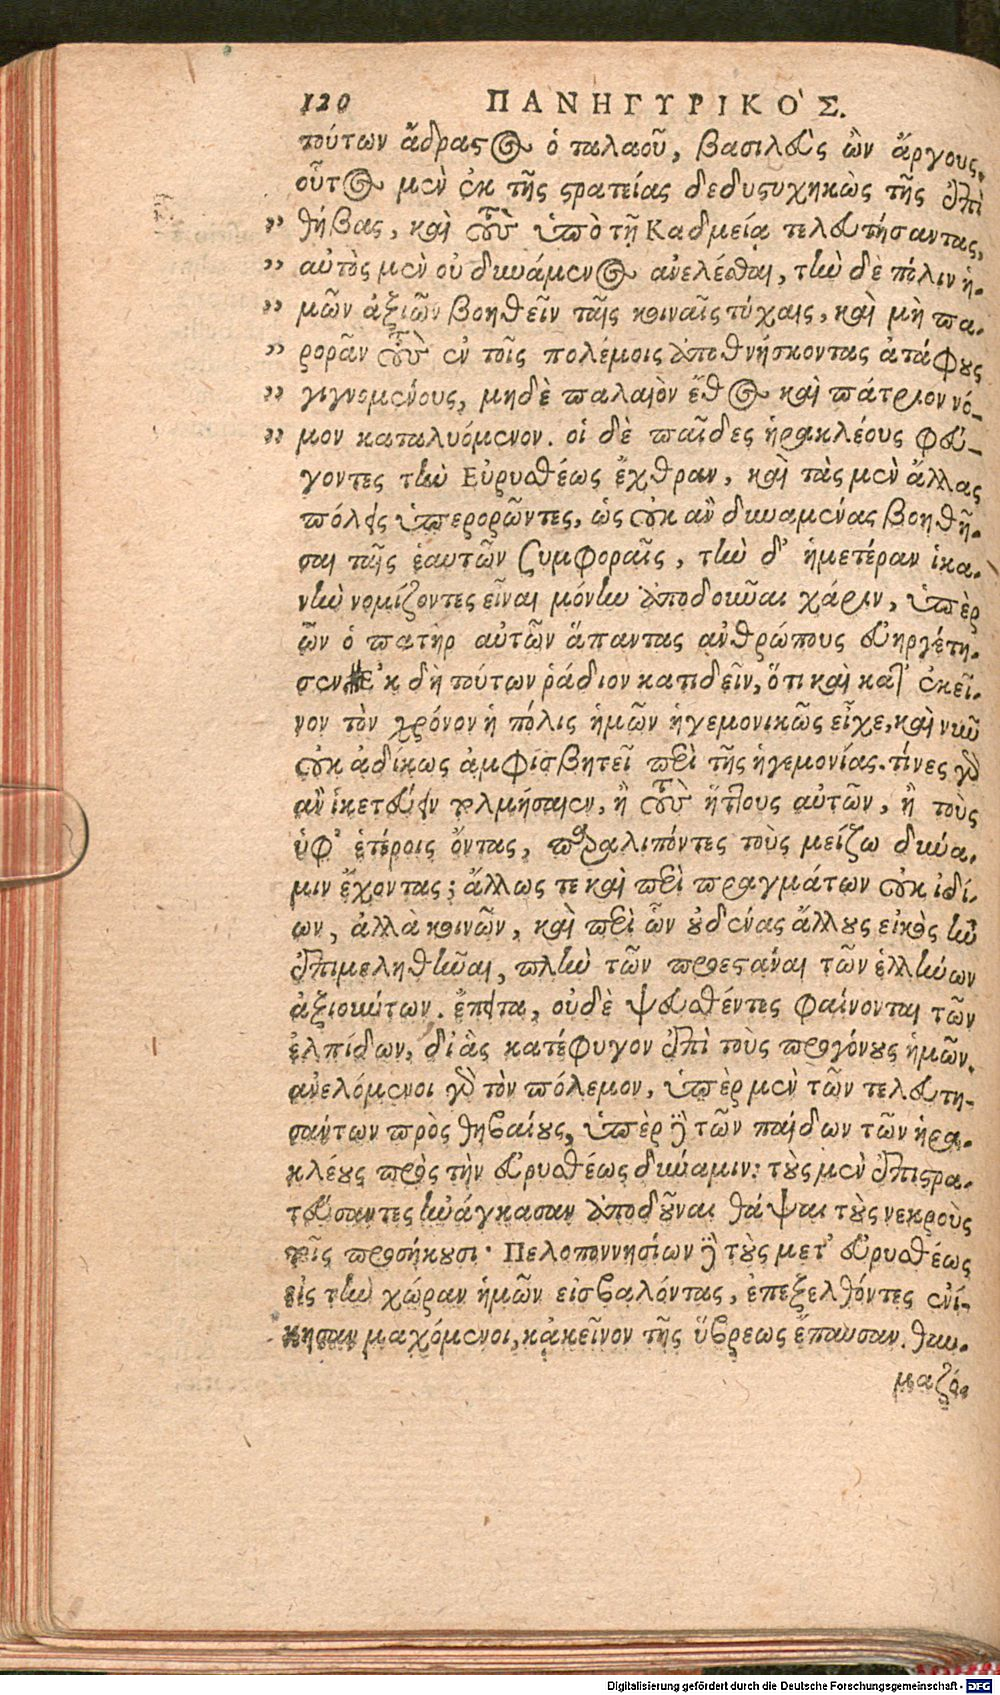 120 ΠΑΝΗΓΥΡΙΚΟ'Σ.
τούτων ἄδραστος ὁ ταλαοῦ, βασιλεὺς ὢν ἄργους,
οὗτος μὲν ἐκ τῆς στρατείας δεδυστυχηκὼς τῆς ἐπὶ
" θήβας, καὶ τοὺς ὑπὸ τῇ Καδμείᾳ τελευτήσαντας,
" αὐτὸς μὲν οὐ δυνάμενος ἀνελέσθαι, τὴν δὲ πόλιν ἡ-
" μῶν ἀξιῶν βοηθεῖν ταῖς κοιναῖς τύχαις, καὶ μὴ πα-
" ρορᾶν τοὺς ἐν τοῖς πολέμοις ἀποθνήσκοντας ἀτάφους
" γιγνομένους, μηδὲ παλαιὸν ἔθος καὶ πάτριον νό-
" μον καταλυόμενον. οἱ δὲ παῖδες ἡρακλέους φεύ-
γοντες τὴν Εὐρυσθέως ἔχθραν, καὶ τὰς μὲν ἄλλας
πόλεις ὑπερορῶντες, ὡς οὐκ ἂν δυναμένας βοηθῆ-
σαι ταῖς ἑαυτῶν συμφοραῖς, τὴν δ' ἡμετέραν ἱκα-
νὴν νομίζοντες εἶναι μόνην ἀποδοῦναι χάριν, ὑπὲρ
ὧν ὁ πατὴρ αὐτῶν ἅπαντας ἀνθρώπους εὐηργέτη-
σεν. Ἐκ δὴ τούτων ῥάδιον κατιδεῖν, ὅτι καὶ κατ' ἐκεῖ-
νον τὸν χρόνον ἡ πόλις ἡμῶν ἡγεμονικῶς εἶχε, καὶ νῦν
οὐκ ἀδίκως ἀμφισβητεῖ περὶ τῆς ἡγεμονίας. τίνες γὰρ
ἂν ἱκετεύειν τολμήσαιεν, ἢ τοὺς ἥττους αὐτῶν, ἢ τοὺς
ὑφ' ἑτέροις ὄντας, παραλιπόντες τοὺς μείζω δύνα-
μιν ἔχοντας; ἄλλως τε καὶ περὶ πραγμάτων οὐκ ἰδί-
ων, ἀλλὰ κοινῶν, καὶ περὶ ὧν οὐδένας ἄλλους εἰκὸς ἦν
ἐπιμεληθῆναι, πλὴν τῶν προεστάναι τῶν ἑλλήνων
ἀξιούντων. ἔπειτα, οὐδὲ ψευσθέντες φαίνονται τῶν
ἐλπίδων, δι' ἃς κατέφυγον ἐπὶ τοὺς προγόνους ἡμῶν.
ἀνελόμενοι γὰρ τὸν πόλεμον, ὑπὲρ μὲν τῶν τελευτη-
σάντων πρὸς θηβαίους, ὑπὲρ δὲ τῶν παίδων τῶν ἡρα-
κλέους πρὸς τὴν εὐρυσθέως δύναμιν: τοὺς μὲν ἐπιστρα-
τεύσαντες ἠνάγκασαν ἀποδοῦναι θάψαι τοὺς νεκροὺς
τοῖς προσήκουσι· Πελοποννησίων δὲ τοὺς μετ' εὐρυσθέως
εἰς τὴν χώραν ἡμῶν εἰσβαλόντας, ἐπεξελθόντες ἐνί-
κησαν μαχόμενοι, κἀκεῖνον τῆς ὕβρεως ἔπαυσαν. θαυ-
μαζό-
Digitalisierung gefördert durch die Deutsche Forschungsgemeinschaft - DFG